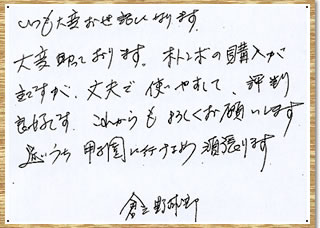 いつも大変お世話になります。
大変助かっております。ボトムスの購入が
主ですが、丈夫で使いやすくて、評判
良好です。これからもよろしくお願いします
近いうち甲子園に行けるよう頑張ります